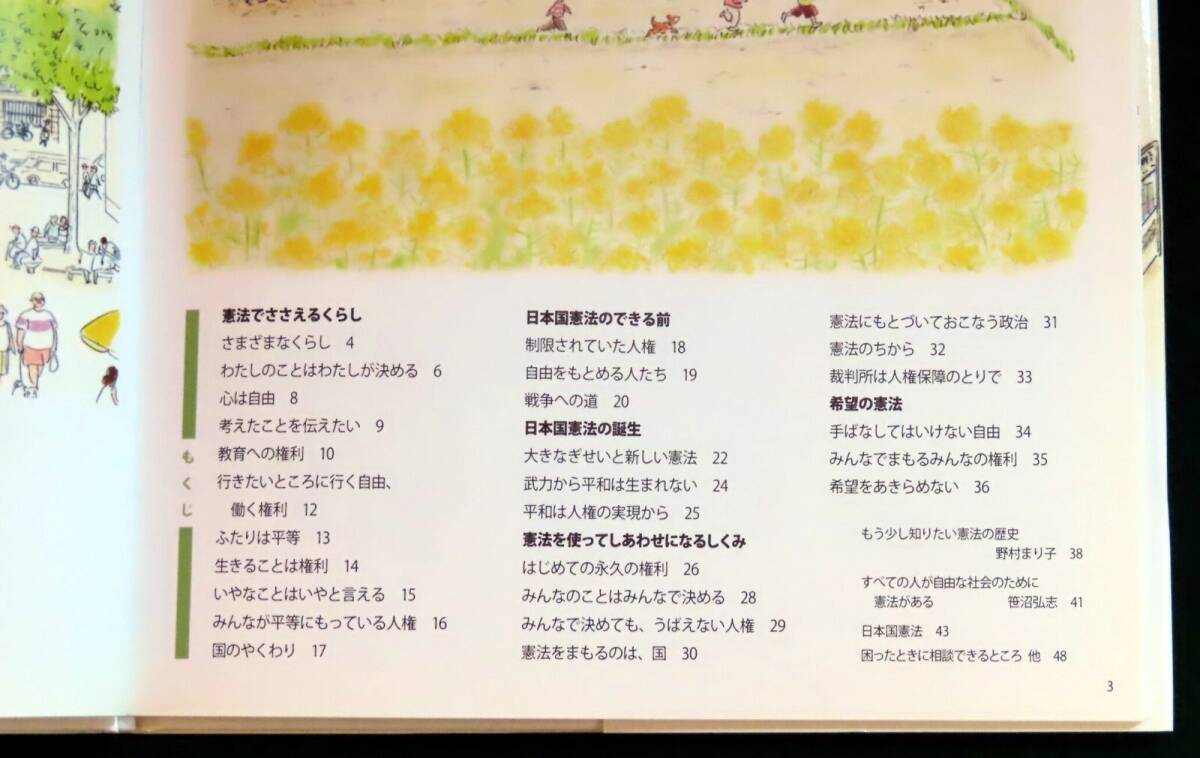 もくじ
憲法でささえるくらし
さまざまなくらし 4
わたしのことはわたしが決める 6
心は自由 8
考えたことを伝えたい 9
教育への権利 10
行きたいところに行く自由、
働く権利 12
ふたりは平等 13
生きることは権利 14
いやなことはいやと言える 15
みんなが平等にもっている人権 16
国のやくわり 17
日本国憲法のできる前
制限されていた人権 18
自由をもとめる人たち 19
戦争への道 20
日本国憲法の誕生
大きなぎせいと新しい憲法 22
武力から平和は生まれない 24
平和は人権の実現から 25
憲法を使ってしあわせになるしくみ
はじめての永久の権利 26
みんなのことはみんなで決める 28
みんなで決めても、うばえない人権 29
憲法をまもるのは、国 30
憲法にもとづいておこなう政治 31
憲法のちから 32
裁判所は人権保障のとりで 33
希望の憲法
手ばなしてはいけない自由 34
みんなでまもるみんなの権利 35
希望をあきらめない 36
もう少し知りたい憲法の歴史
野村まり子 38
すべての人が自由な社会のために
憲法がある 笹沼弘志 41
日本国憲法 43
困ったときに相談できるところ 他 48
3